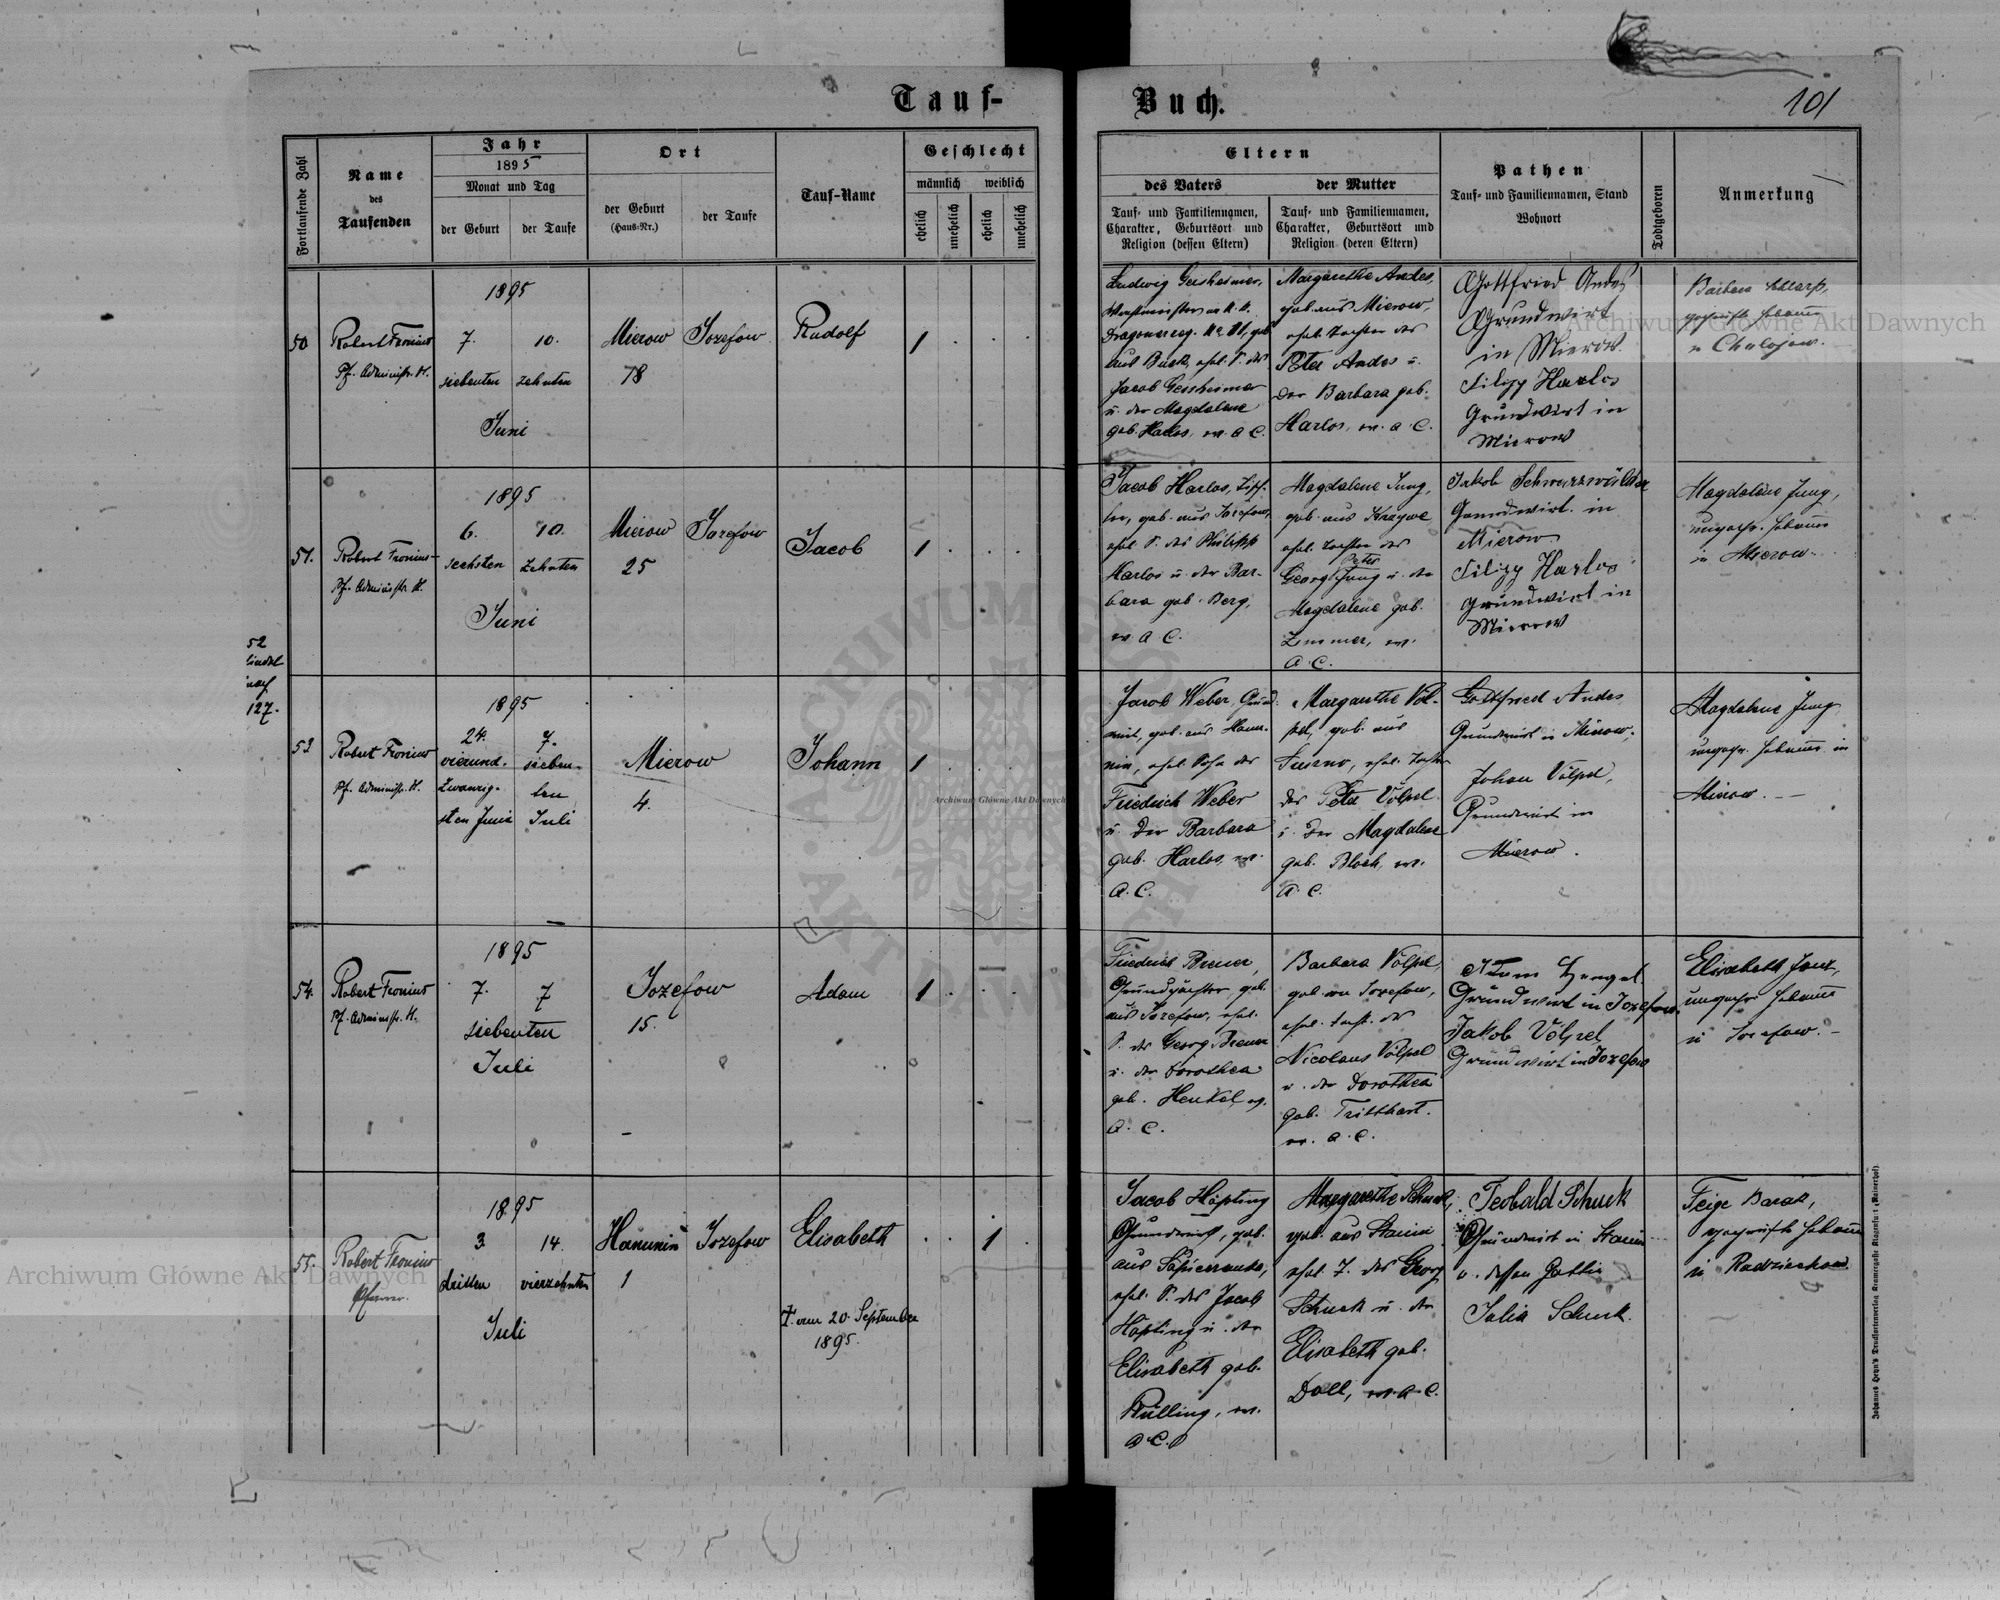 Tauf-
Buch.
101
Fortlaufende Zahl
Name
des
Taufenden
Jahr
1895
Monat und Tag
der Geburt
der Taufe
Ort
der Geburt
(Haus-Nr.)
der Taufe
Tauf-Name
Geschlecht
männlich
weiblich
ehelich
unehelich
ehelich
unehelich
Eltern
des Vaters
Tauf- und Familiennamen,
Charakter, Geburtsort und
Religion (dessen Eltern)
der Mutter
Tauf- und Familiennamen,
Charakter, Geburtsort und
Religion (deren Eltern)
Pathen
Tauf- und Familiennamen, Stand
Wohnort
Todtgeboren
Anmerkung
50
Robert Fronius
Pf. Administr. H.
1895
7. 10.
siebenten zehnten
Juni
Mierow Jozefow
78
Rudolf
1
Ludwig Gessheimer,
aus Busk, ehel. S. des
Jacob Gessheimer
u. der Magdalene
geb. Harlos, ev. A. C.
Margarethe Andes,
geb. aus Mierow,
ehel. Tochter des
Peter Andes u.
der Barbara geb.
Harlos, ev. A. C.
Gottfried Andes
Grundwirt
in Mierow
Filipp Harlos
Grundwirt in
Mierow
Barbara
geprüfte Hebamme
in Chołojow.
51.
Robert Fronius
Pf. Administr. H.
1895
6. 10.
sechsten zehnten
Juni
Mierow Jozefow
25
Jacob
1
Jacob Harlos,
geb. aus Jozefow,
ehel. S. des Philipp
Harlos u. der Bar-
bara geb. Berg,
ev. A. C.
Magdalene Jung,
geb. aus
ehel. Tochter des
Peter
Georg Jung u. der
Magdalene geb.
Zimmer, ev.
A. C.
Jakob Schwarzwälder
Grundwirt. in
Mierow
Filipp Harlos
Grundwirt in
Mierow
Magdalene Jung,
ungepr. Hebamme
in Mierow.
52
127.
53
Robert Fronius
Pf. Administr. H.
1895
24. 7.
vierund- sieben-
zwanzig- ten
sten Juni Juli
Mierow
4.
Johann
1
Jacob Weber, Grund-
wirt, geb. aus Hanu-
nin, ehel. Sohn des
Friedrich Weber
u. der Barbara
geb. Harlos, ev.
A. C.
Margarethe Völ-
pel, geb. aus
ehel. Tochter
des Peter Völpel
u. der Magdalene
geb. Bloch, ev.
A. C.
Gottfried Andes
Grundwirt in Mierow,
Johan Völpel,
Grundwirt in
Mierow.
Magdalene Jung
ungepr. Hebamme in
Mierow. —
54.
Robert Fronius
Pf. Administr. H.
1895
7. 7
siebenten
Juli
Jozefow
15.
Adam
1
Friedrich Breuer,
Grundpächter, geb.
aus Jozefow, ehel.
S. des Georg Breuer
u. der Dorothea
geb. Henkel, ev.
A. C.
Barbara Völpel,
geb. in Jozefow,
ehel. Tocht. des
Nicolaus Völpel
u. der Dorothea
geb. Tritthart.
ev. A. C.
Adam Hengel
Grundwirt in Jozefow.
Jakob Völpel
Grundwirt in Jozefow
Elisabeth
ungepr. Hebamme
in Jozefow. —
55.
Robert Fronius
Pfarrer.
1895
3. 14.
dritten vierzehnten
Juli
Hanunin Jozefow
1
Elisabeth
† am 20. September
1895.
1
Jacob Höpting
Grundwirt, geb.
aus Sapieżanka,
ehel. S. des Jacob
Höpting u. der
Elisabeth geb.
Rülling, ev.
A. C.
Margarethe Schuck,
geb. aus Stanin
ehel. T. des Georg
Schuck u. der
Elisabeth geb.
Doll, ev. A. C.
Teobald Schuck
Grundwirt in Stanin
u. dessen Gattin
Julia Schuck.
Feige Barak,
geprüfte Hebamme
in Radziechow
Johannes Heyn's Druckfortenverlag Kramergasse Klagenfurt (Rainerhof)
Archiwum Główne Akt Dawnych
Archiwum Główne Akt Dawnych
Archiwum Główne Akt Dawnych